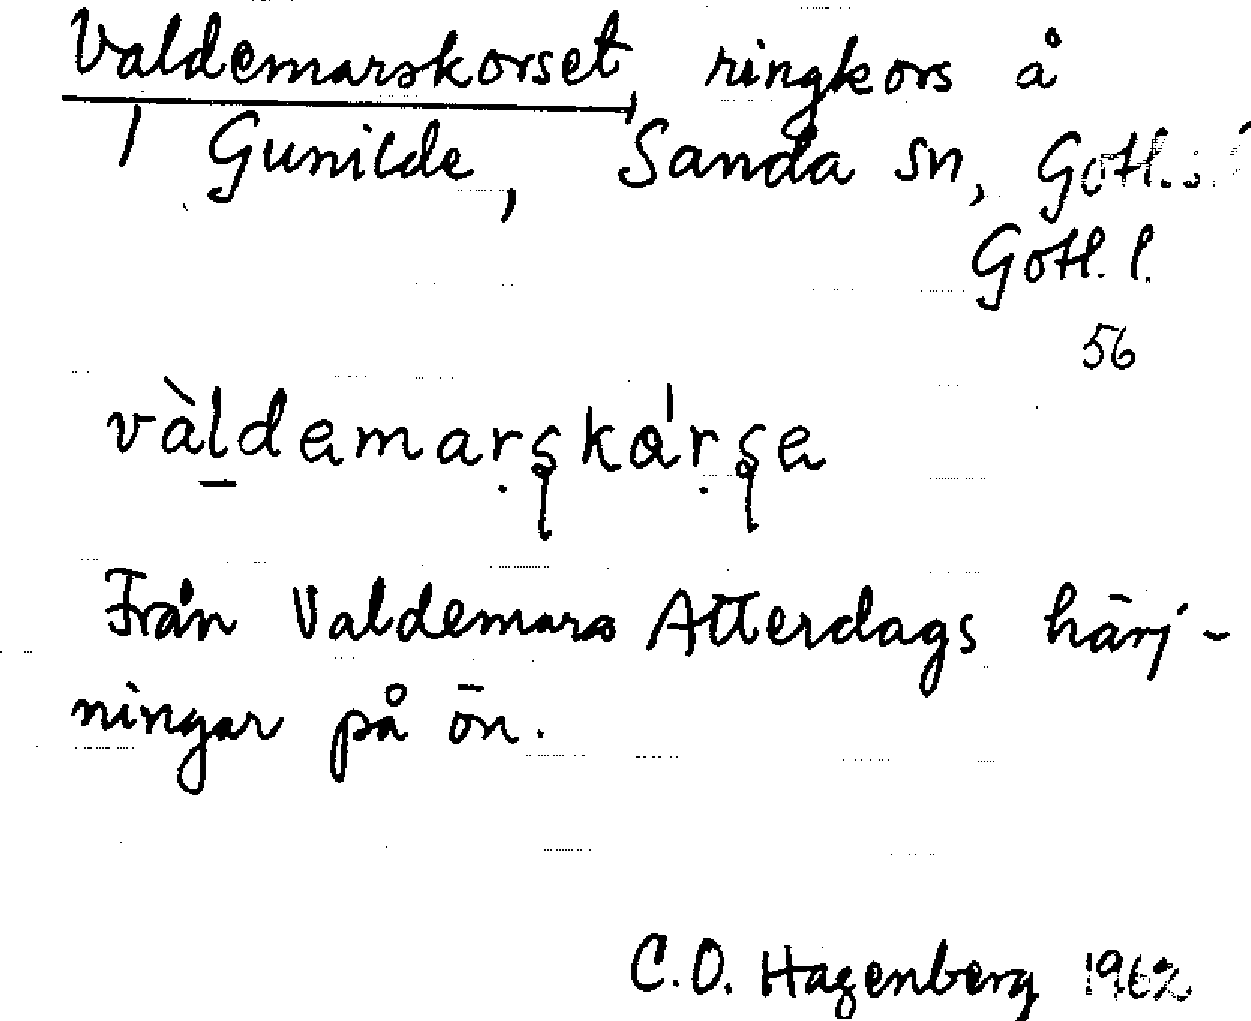 Valdemarskorset, ringkors å
Gunilde, Sanda sn, Gotl.
Gotl. l.
56
vàldemarskárse
Från Valdemars Atterdags härj-
ningar på ön.
C.O. Hagenberg 1962